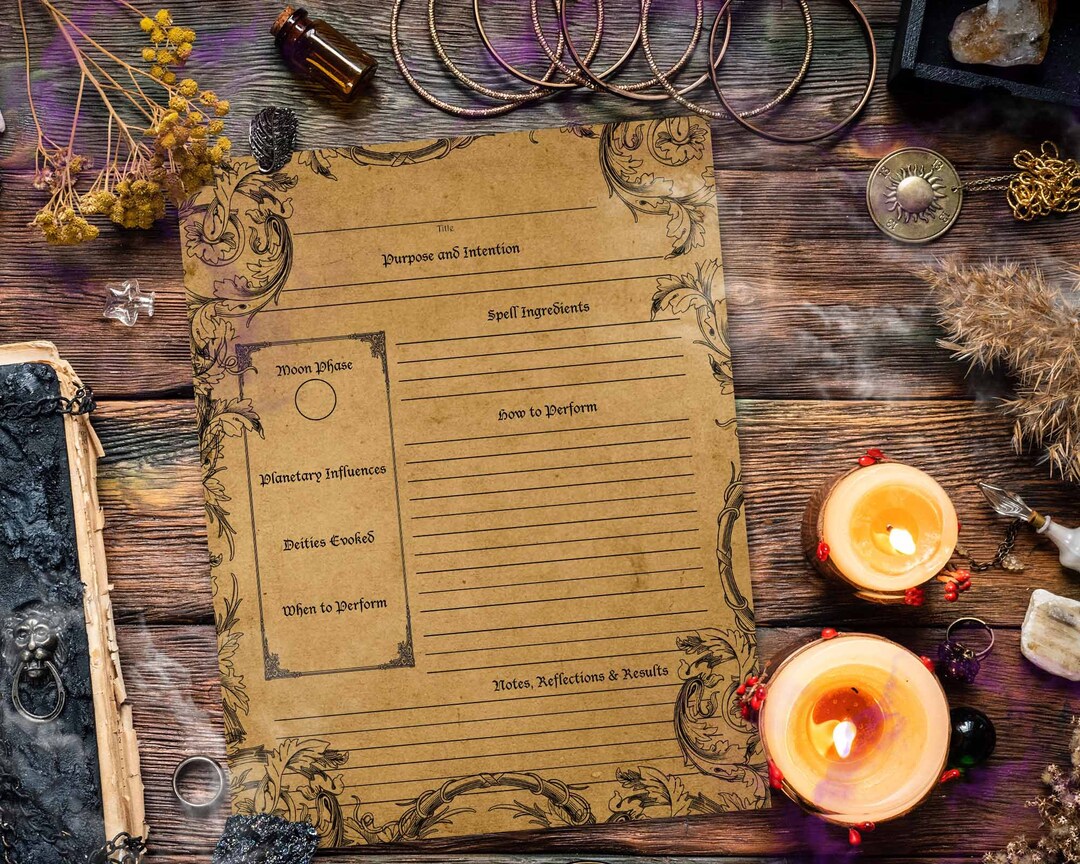 Title
Purpose and Intention
Spell Ingredients
Moon Phase
How to Perform
Planetary Influences
Deities Evoked
When to Perform
Notes, Reflections & Results